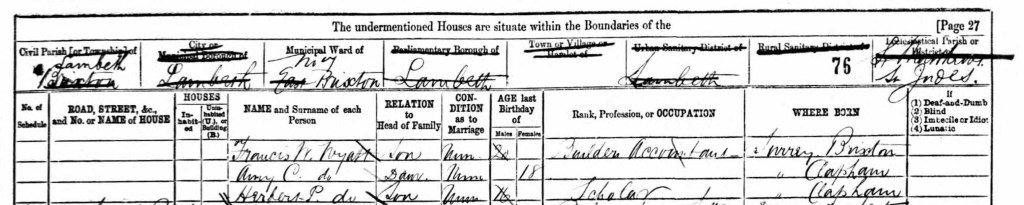 The undermentioned Houses are situate within the Boundaries of the [Page 27
Civil Parish [or Township] of City or Municipal Borough of Municipal Ward of Parliamentary Borough of Town or Village or Hamlet of Urban Sanitary District of Rural Sanitary District of Ecclesiastical Parish or District of
Lambeth
Brixton Lambeth East Brixton Lambeth Lambeth 76 St Judes
No. of Schedule ROAD, STREET, &c., and No. or NAME of HOUSE HOUSES Inhabited Uninhabited (U.), or Building (B.) NAME and Surname of each Person RELATION to Head of Family CONDITION as to Marriage AGE last Birthday of Males Females Rank, Profession, or OCCUPATION WHERE BORN If
(1) Deaf-and-Dumb
(2) Blind
(3) Imbecile or Idiot
(4) Lunatic
Francis W. Wyatt Son Unm Builders Accountant Surrey Brixton
Amy C. do Daur Unm 18 " Clapham
Herbert P. do Son Unm 16 Scholar " Clapham